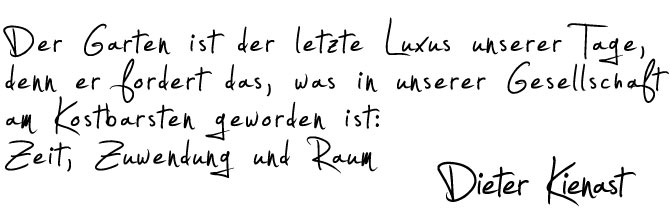 Der Garten ist der letzte Luxus unserer Tage,
denn er fordert das, was in unserer Gesellschaft
am Kostbarsten geworden ist:
Zeit, Zuwendung und Raum
Dieter Kienast